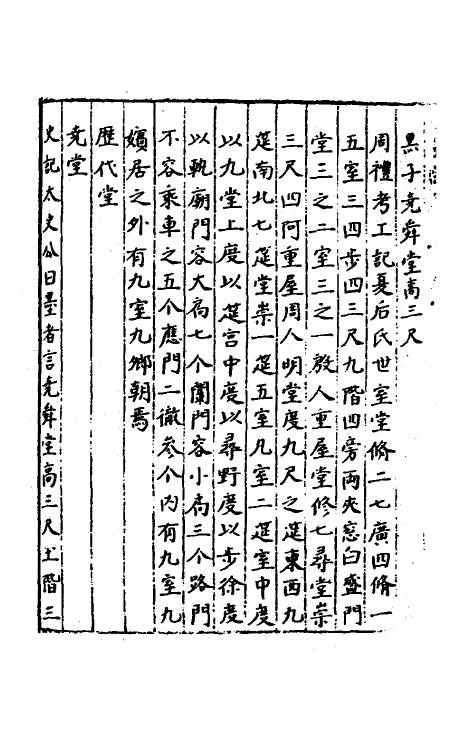 墨子尭舜堂高三尺
周禮考工記夏后氏世室堂脩二七廣四脩一
五室三四步四三尺九階四旁兩夾窓白盛門
堂三之二室三之一殷人重屋堂修七尋堂崇
三尺四阿重屋周人明堂度九尺之筵東西九
筵南北七筵堂崇一筵五室凡室二筵室中度
以九堂上度以筵宫中度以尋野度以步徐度
以軌廟門容大扃七个闈門容小扃三个路門
不容乘車之五个應門二徹參个内有九室九
嬪居之外有九室九卿朝焉
歴代堂
尭堂
史記太史公曰墨者言尭舜堂高三尺土階三